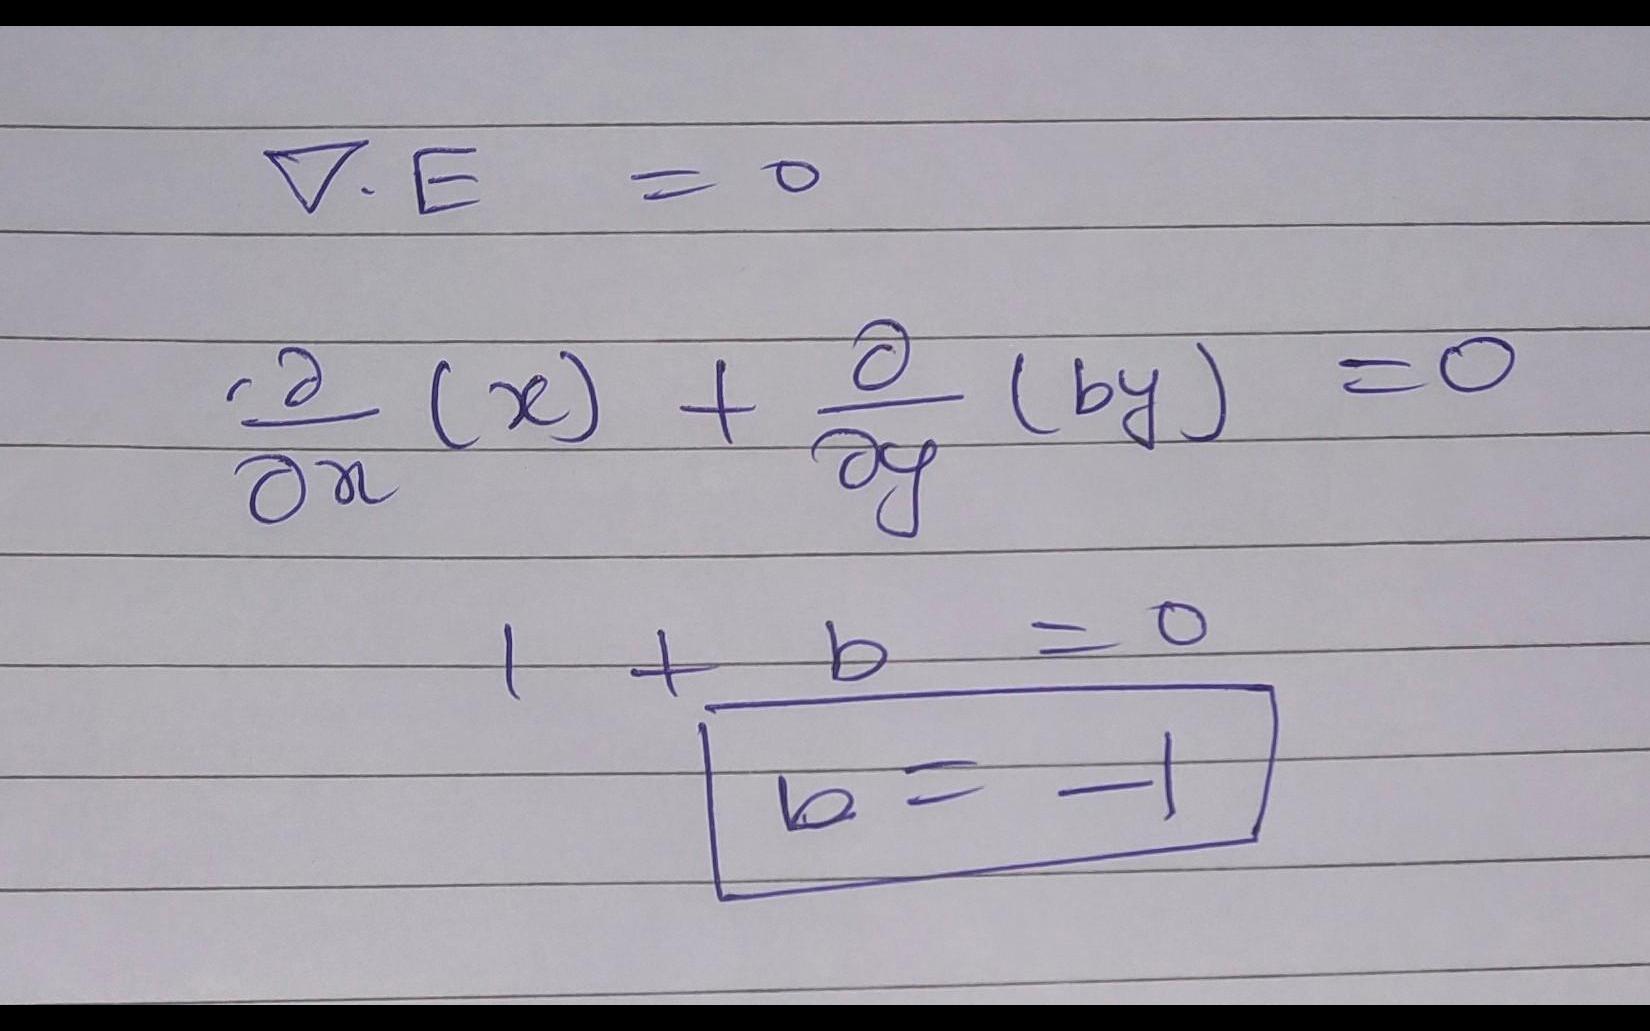 ∇·E = 0
∂/∂x (x) + ∂/∂y (by) = 0
1 + b = 0
b = -1